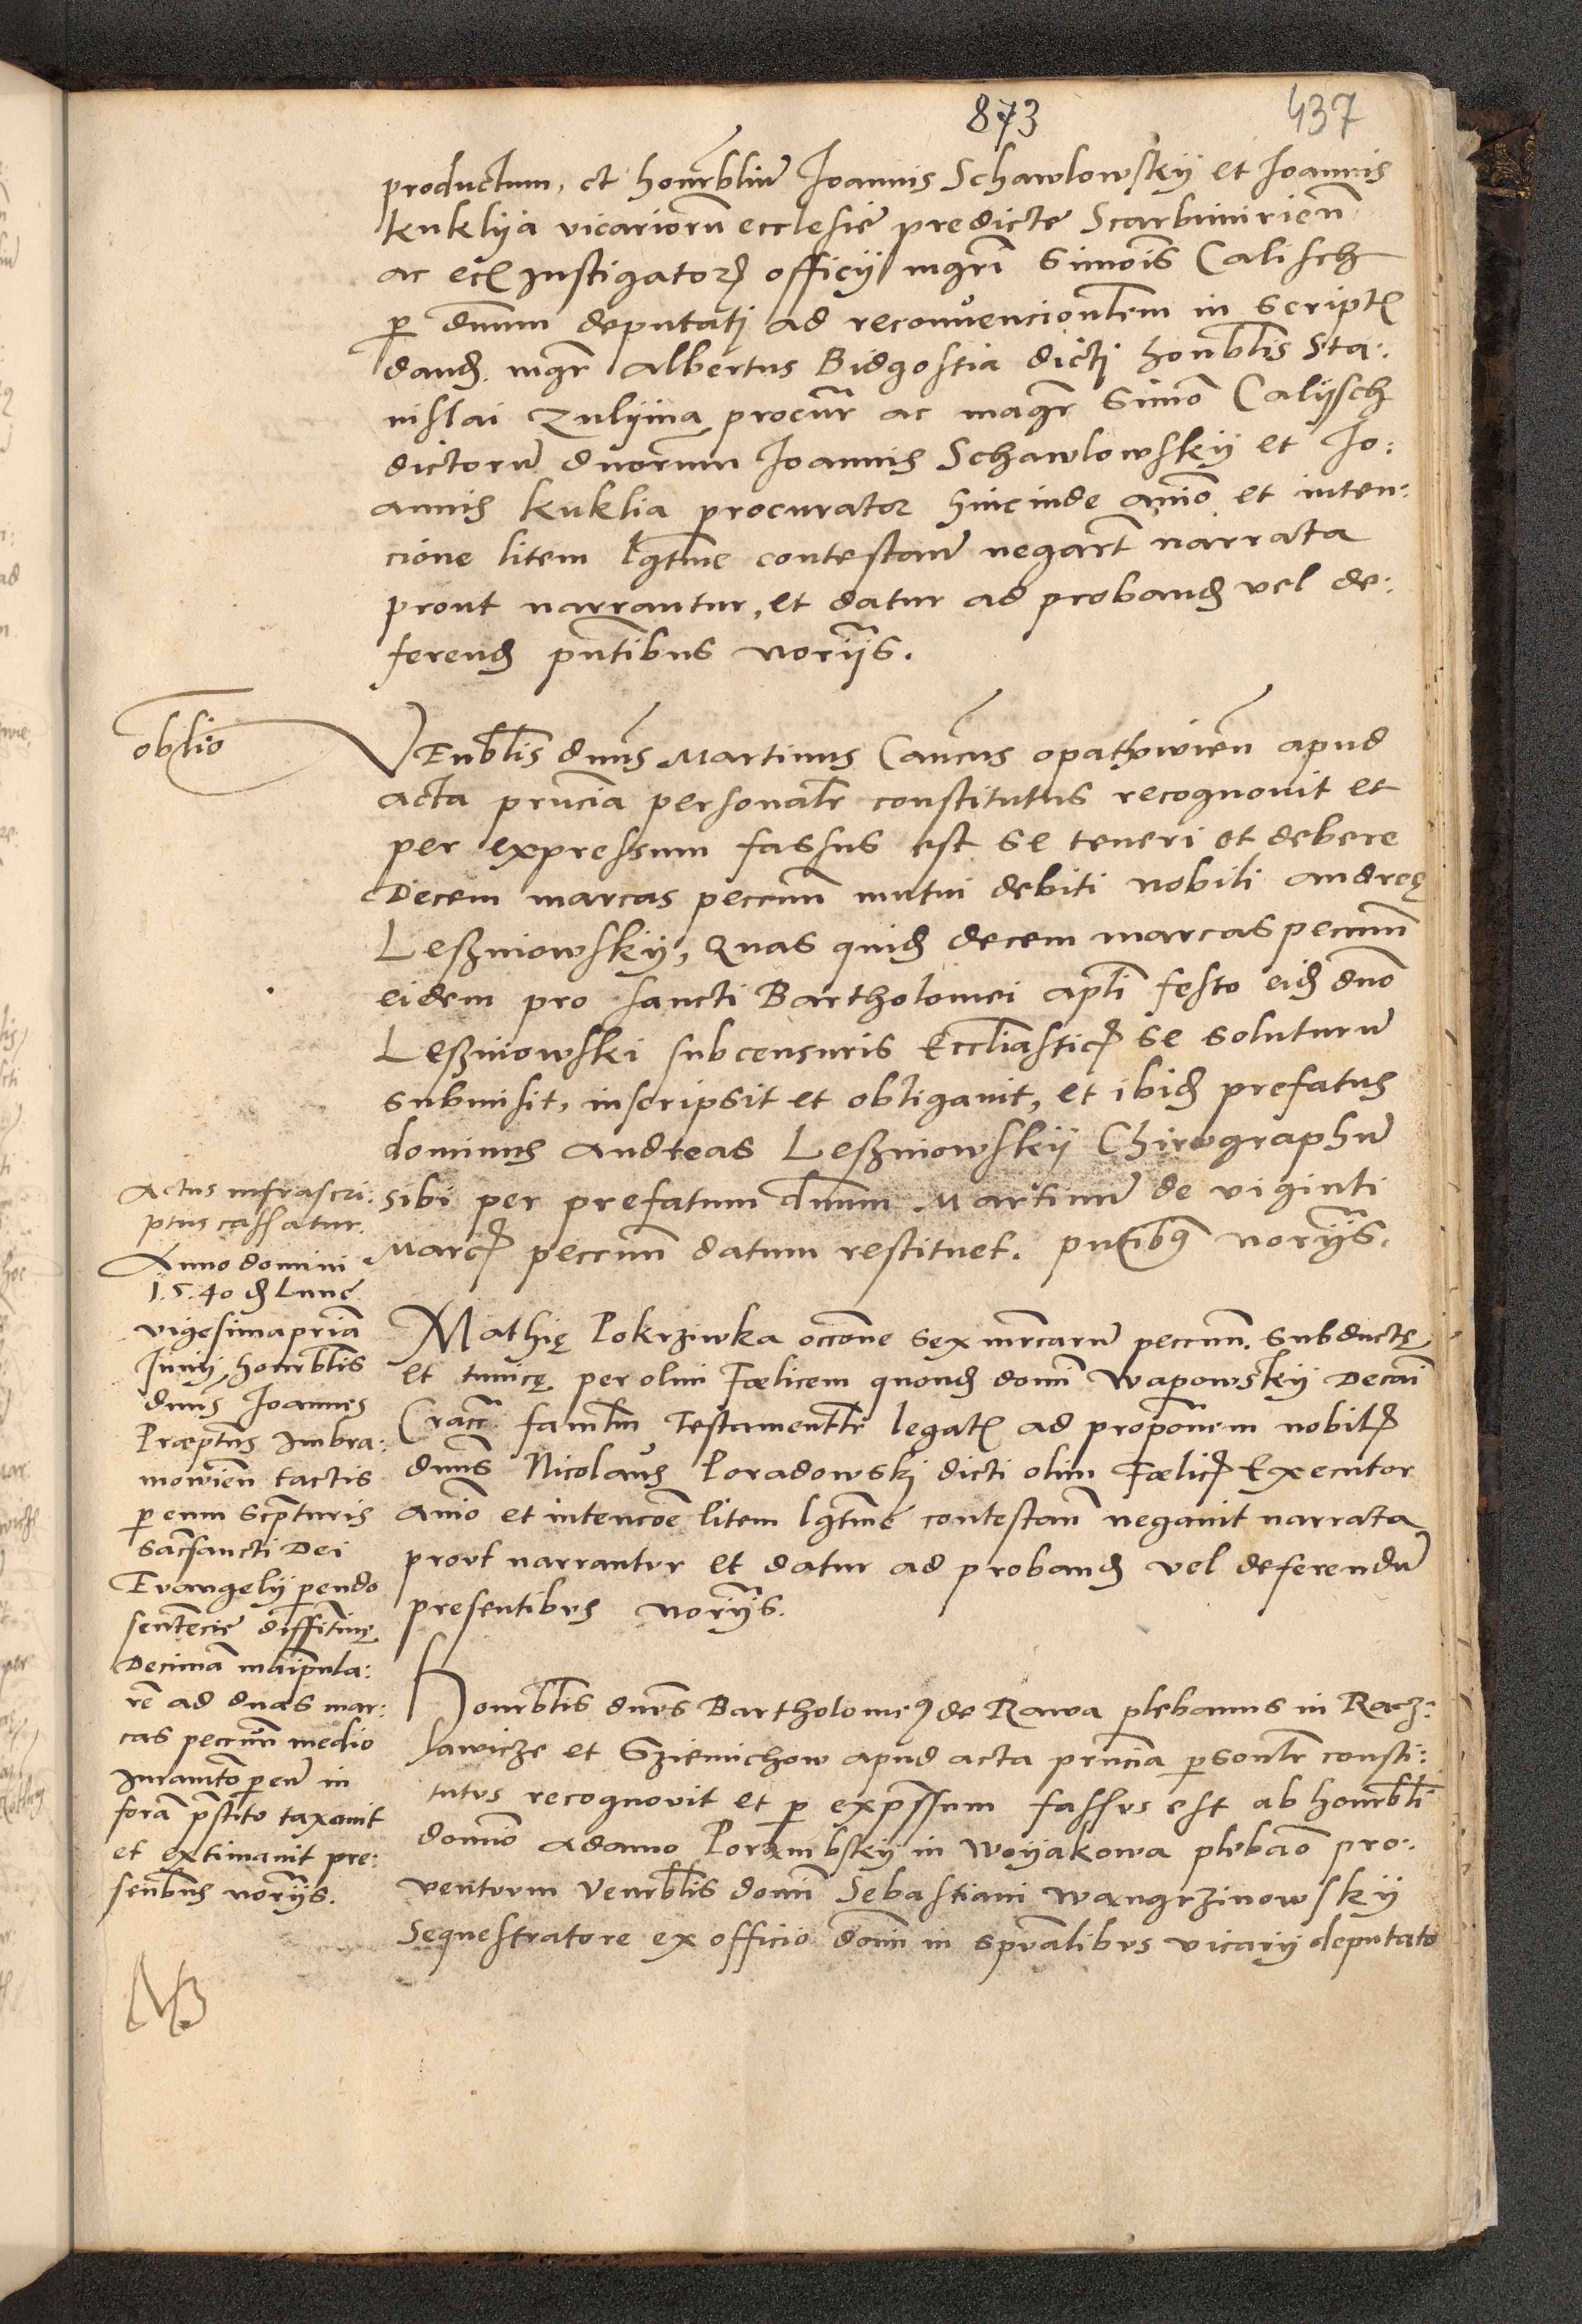 873 437
productum, et honrbliū Joannis Schawlowskÿ et Joannis
kuklÿa vicariorū ecclesie predicte Scarbimirieñ
ac ecī Instigatorꝫ officÿ mgri Simōis Calisch
p dnum deputatj ad reconvencionlem in scriptꝭ
dandꝫ. mgr Albertus Bidgostia dictj honrblis Sta:
nislai Zulÿma procur̄ ac magr̄ Simō Calÿsch
dictorū duorum Joannis Schawlowskÿ et Jo:
annis kuklia procurator hincinde anīo et inten:
cione litem lgtme contestanī negart̄ narrata
prout narrantur, et datur ad probandꝫ vel de:
ferendꝫ pn̄tibus norÿs.
oblio
VEnblis dnūs Martinus Cancus opathowieñ apud
acta pn̄cia personalr constitutus recognouit et
per expressum fassus est se teneri et debere
Decem marcas peccun̄ mutui debiti nobili andreę
Leßniowskÿ, Quas quidꝫ decem marcas peccun̄
eidem pro sancti Bartholomei apli festo eidꝫ dnō
Leßniowski sub censuris Eccliasticꝭ se soluturū
submisit, inscripsit et obligauit, et ibidꝫ prefatus
dominus Andreas Leßniowskÿ Chirographū
sibi per prefatum dnum Martinū de viginti
Marcꝭ peccun̄ datum restituet. pn̄tibꝰ norÿs.
Actus infrascri:
ptus cassatur.
Anno domini
1.5.40 dꝫ Lune
vigesimapriā
Junÿ, honrblis
dnūs Joannes
Præptus Imbra:
mowieñ tactis
p eum Scpturis
sacsancti Dei
Evangelÿ pendo
sentēcie diffitiuę
Decimā maipula:
rē ad duas mar:
cas peccun̄ medio
Iuramto p eū in
forā pstito taxauit
et extimauit pre:
sentibus norÿs.
Mathię Pokrziwka occōne sex mrcarū peccun̄. subductę
et tunicę per olim Fælicem quondꝫ domī Wapowskÿ Decāi
Cracc̄ famlm Testamentlr legatꝭ ad proponem nobilꝭ
dnūs Nicolaus Poradowskj dicti olim Fælicꝭ Executor
anīo et intencōe litem lgtme contestanī negauit narrata
prout narrantur et datur ad probandꝫ vel deferendū
presentibus norÿs.
Honrblis dnūs Bartholomeꝰ de Rawa plebanus in Racz:
lawicze et Gziemichow apud acta pn̄cia psonlr consti:
tutus recognouit et p expssum fassus est ab honrbli
domīo Adamo Porambskÿ in Woÿakowa plebāo pro:
ventuum Venrblis domī Sebastiani Wangrzinowskÿ
Sequestratore ex officio domī in spualibus vicarÿ deputato
NB